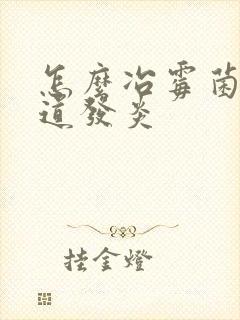 怎麼冶霉菌
道發炎
挂金燈